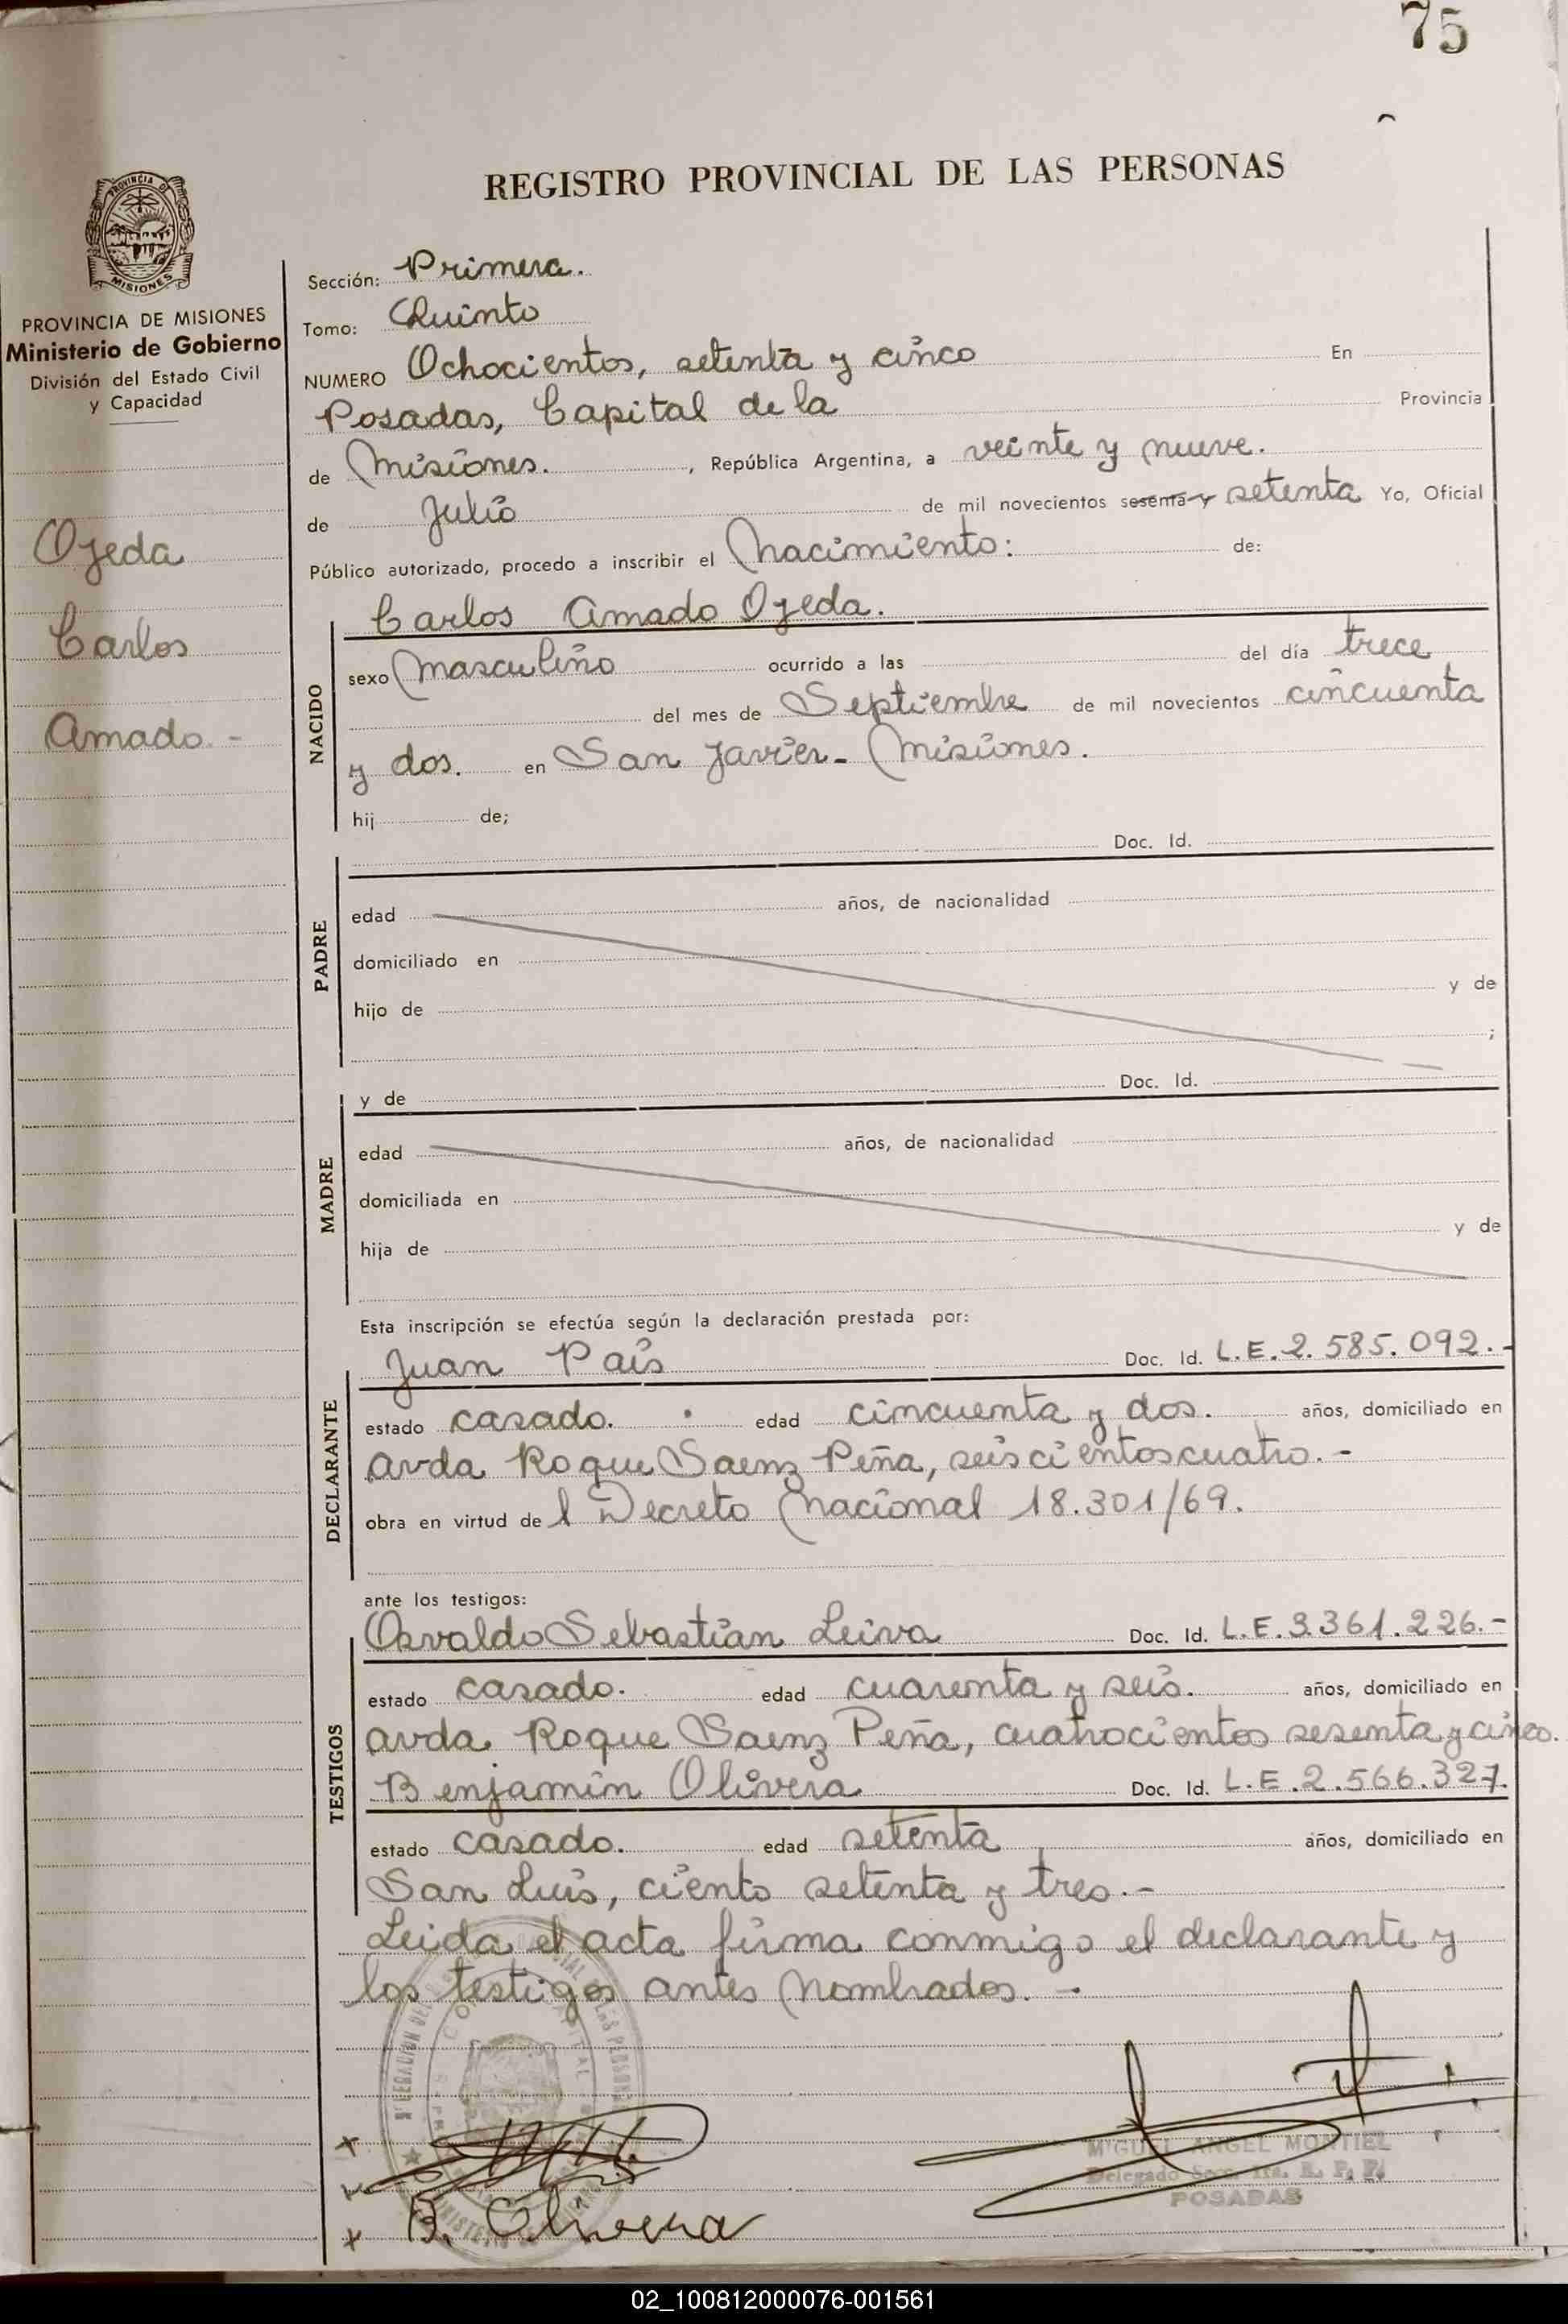 75
REGISTRO PROVINCIAL DE LAS PERSONAS
PROVINCIA DE MISIONES
Ministerio de Gobierno
División del Estado Civil
y Capacidad
Ojeda
Carlos
Amado.-
Sección: Primera.
Tomo: Quinto
NUMERO Ochocientos, setenta y cinco En
Posadas, Capital de la Provincia
de Misiones. , República Argentina, a veinte y nueve.
de Julio de mil novecientos sesenta y setenta Yo, Oficial
Público autorizado, procedo a inscribir el Nacimiento: de:
Carlos Amado Ojeda.
NACIDO
sexo Masculino ocurrido a las del día trece
del mes de Septiembre de mil novecientos cincuenta
y dos. en San Javier - Misiones.
hij de;
Doc. Id.
PADRE
edad años, de nacionalidad
domiciliado en
hijo de y de
;
y de Doc. Id.
MADRE
edad años, de nacionalidad
domiciliada en
hija de y de
Esta inscripción se efectúa según la declaración prestada por:
Juan Pais Doc. Id. L.E.2.585.092.-
DECLARANTE
estado casado. edad cincuenta y dos. años, domiciliado en
Avda Roque Saenz Peña, seiscientoscuatro.-
obra en virtud de l Decreto Nacional 18.301/69.
ante los testigos:
Osvaldo Sebastian Leiva Doc. Id. L.E.3.361.226.-
TESTIGOS
estado casado. edad cuarenta y seis. años, domiciliado en
Avda Roque Saenz Peña, cuatrocientos sesenta y cinco.
Benjamin Olivera Doc. Id. L.E.2.566.327.
estado casado. edad setenta años, domiciliado en
San Luis, ciento setenta y tres.-
Leida el acta firma conmigo el declarante y
los testigos antes nombrados.-
MIGUEL ANGEL MONTIEL
Delegado Secc. 1ra. R. P. P.
POSADAS
B. Olivera
02_100812000076-001561